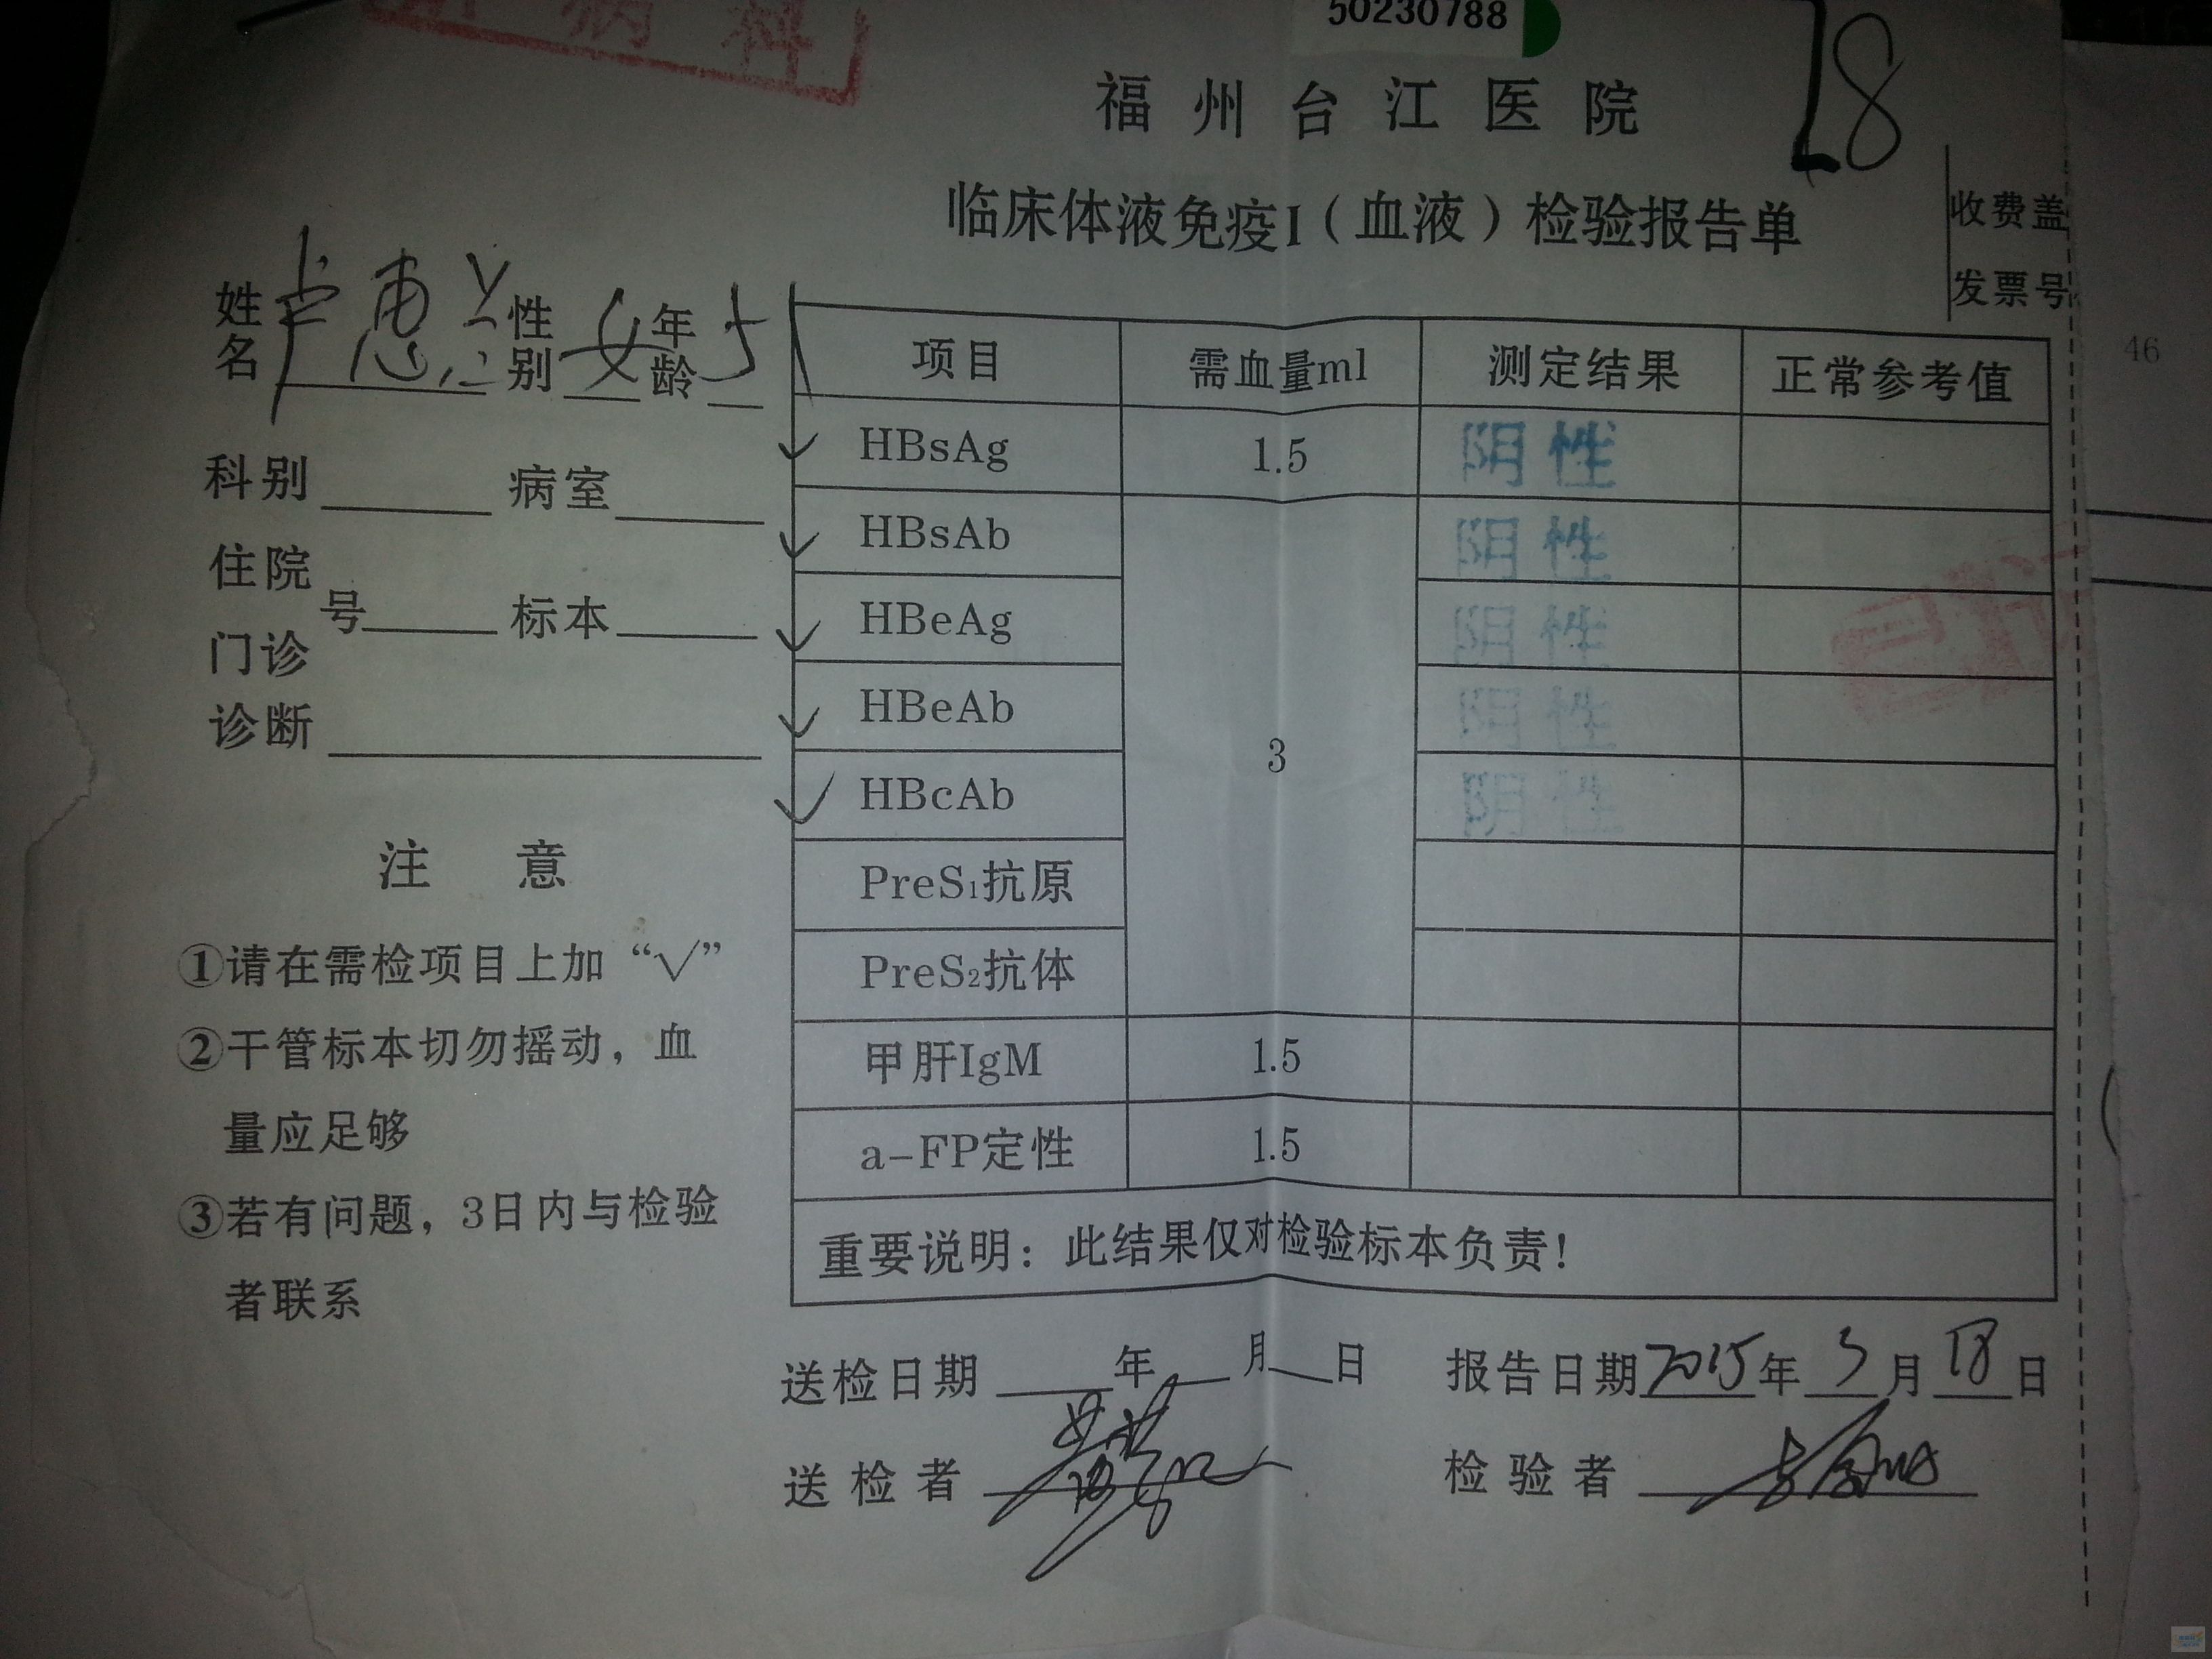 病 科
50230788
18
福州台江医院
临床体液免疫I（血液）检验报告单
收费盖
发票号
姓名 卢惠兰 性别 女 年龄 51
项目 需血量ml 测定结果 正常参考值
46
✓ HBsAg 1.5 阴性
科别 病室
✓ HBsAb 阴性
住院
门诊 号 标本
✓ HBeAg 阴性
✓ HBeAb 阴性
诊断
3
✓ HBcAb 阴性
PreS₁抗原
PreS₂抗体
甲肝IgM 1.5
a-FP定性 1.5
重要说明：此结果仅对检验标本负责！
注 意
①请在需检项目上加“√”
②干管标本切勿摇动，血
量应足够
③若有问题，3日内与检验
者联系
送检日期 年 月 日 报告日期 2015年3月18日
送检者 检验者